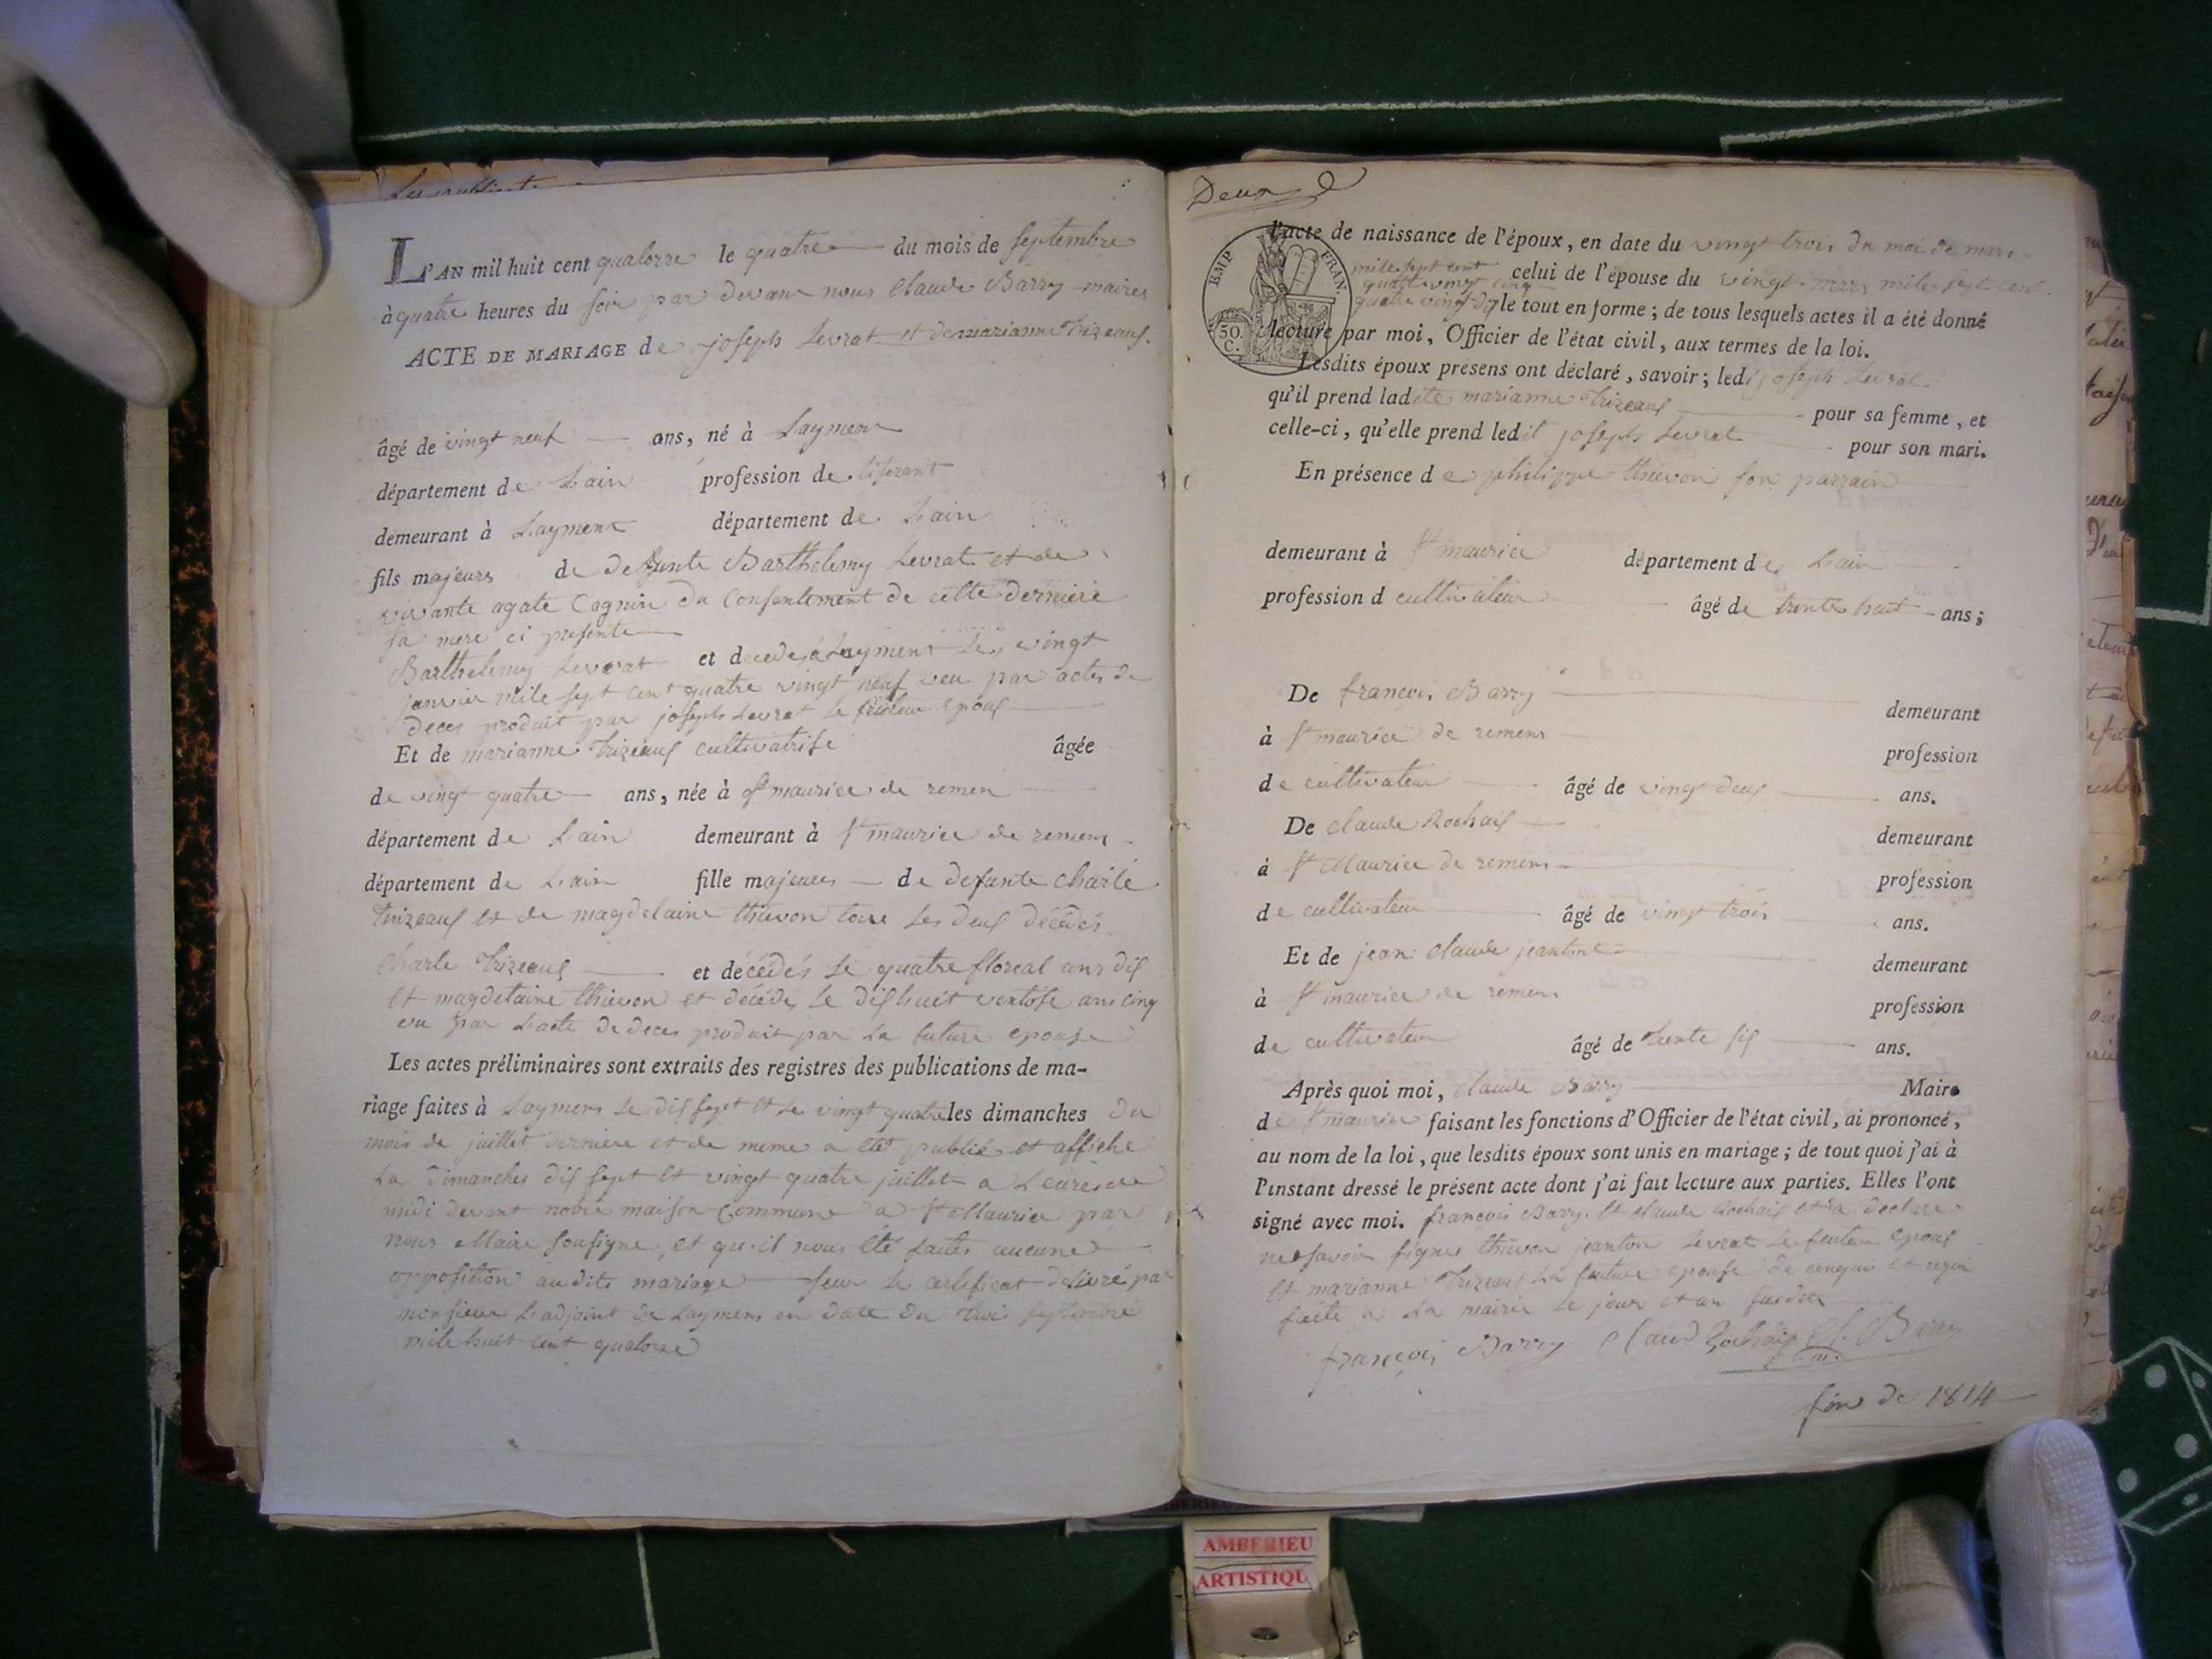 L'AN mil huit cent quatorze le quatre du mois de septembre
à quatre heures du soir par devant nous Claude Barry maires
ACTE DE MARIAGE de joseph Levrat et de marianne Trizeaux.
âgé de vingt neuf ans, né à Layment
département de Lain profession de tiserant
demeurant à Layment département de Lain
fils majeurs de defunte Barthelemy Levrat et de
vivante agate Cagnin du Consentement de cette derniere
sa mere ci presente
Barthelemy Levrat et decedes a Layment Le vingt
janvier mile sept cent quatre vingt neuf veu par actes de
deces produit par joseph Levrat le fuuteur epoux
Et de marianne Trizeaux cultivatrise âgée
de vingt quatre ans, née à st maurice de remen
département de Lain demeurant à st maurice de remens
département de Lain fille majeures de defunte charle
Trizeaux et de magdelaine thievon tous les deux décédés
Charle Trizeaux et décédés le quatre floreal ans dix
et magdelaine thievon et décédés le dixhuit ventose ans cinq
vu par Lacte de deces produit par La future epouse
Les actes préliminaires sont extraits des registres des publications de ma-
riage faites à Laymens le dix sept et le vingt quatre les dimanches du
mois de juillet derniere et de meme a eté publié et affiche
La dimanches dix sept et vingt quatre juillet a Leures de
midi devant notre maison Commune a st Maurice par
nous Maire sousigne, et qu'il nous eté faites aucune
opposition audite mariage seur le certificat delivré par
monsieur L'adjoint de Laymens en date du trois septembre
mile huit cent quatorze
Deux
L'acte de naissance de l'époux, en date du vingt trois du moi de mars
mile sept cent
quatre vingt cinq celui de l'épouse du vingt mars mile sept cent
quatre vingt dix le tout en forme; de tous lesquels actes il a été donné
EMP FRAN.
50.
C.
lecture par moi, Officier de l'état civil, aux termes de la loi.
Lesdits époux présens ont déclaré, savoir; ledi joseph Levrat
qu'il prend ladite marianne Trizeaux pour sa femme, et
celle-ci, qu'elle prend ledit joseph Levrat pour son mari.
En présence de philippe thievon son parrain
demeurant à st maurice département de Lain
profession d cultivateur âgé de trente huit ans;
De françois Barry demeurant
à st maurice de remens profession
de cultivateur âgé de vingt deux ans.
De claude Rochaix demeurant
à st Maurice de remens profession
de cultivateur âgé de vingt trois ans.
Et de jean claude jeanton demeurant
à st maurice de remens profession
de cultivateur âgé de trente six ans.
Après quoi moi, claude Barry Maire
de st maurice faisant les fonctions d'Officier de l'état civil, ai prononcé,
au nom de la loi, que lesdits époux sont unis en mariage; de tout quoi j'ai à
l'instant dressé le présent acte dont j'ai fait lecture aux parties. Elles l'ont
signé avec moi. françois Barry et claude Rochaix et a declare
ne savoir signer thievon jeanton Levrat le fuuteur epoux
et marianne Trizeaux la future epouse de
faite a La mairie le jour et an
françois Barry Claud Rochaix Cl. Barry
m.
fin de 1814
AMBERIEU
ARTISTIQU